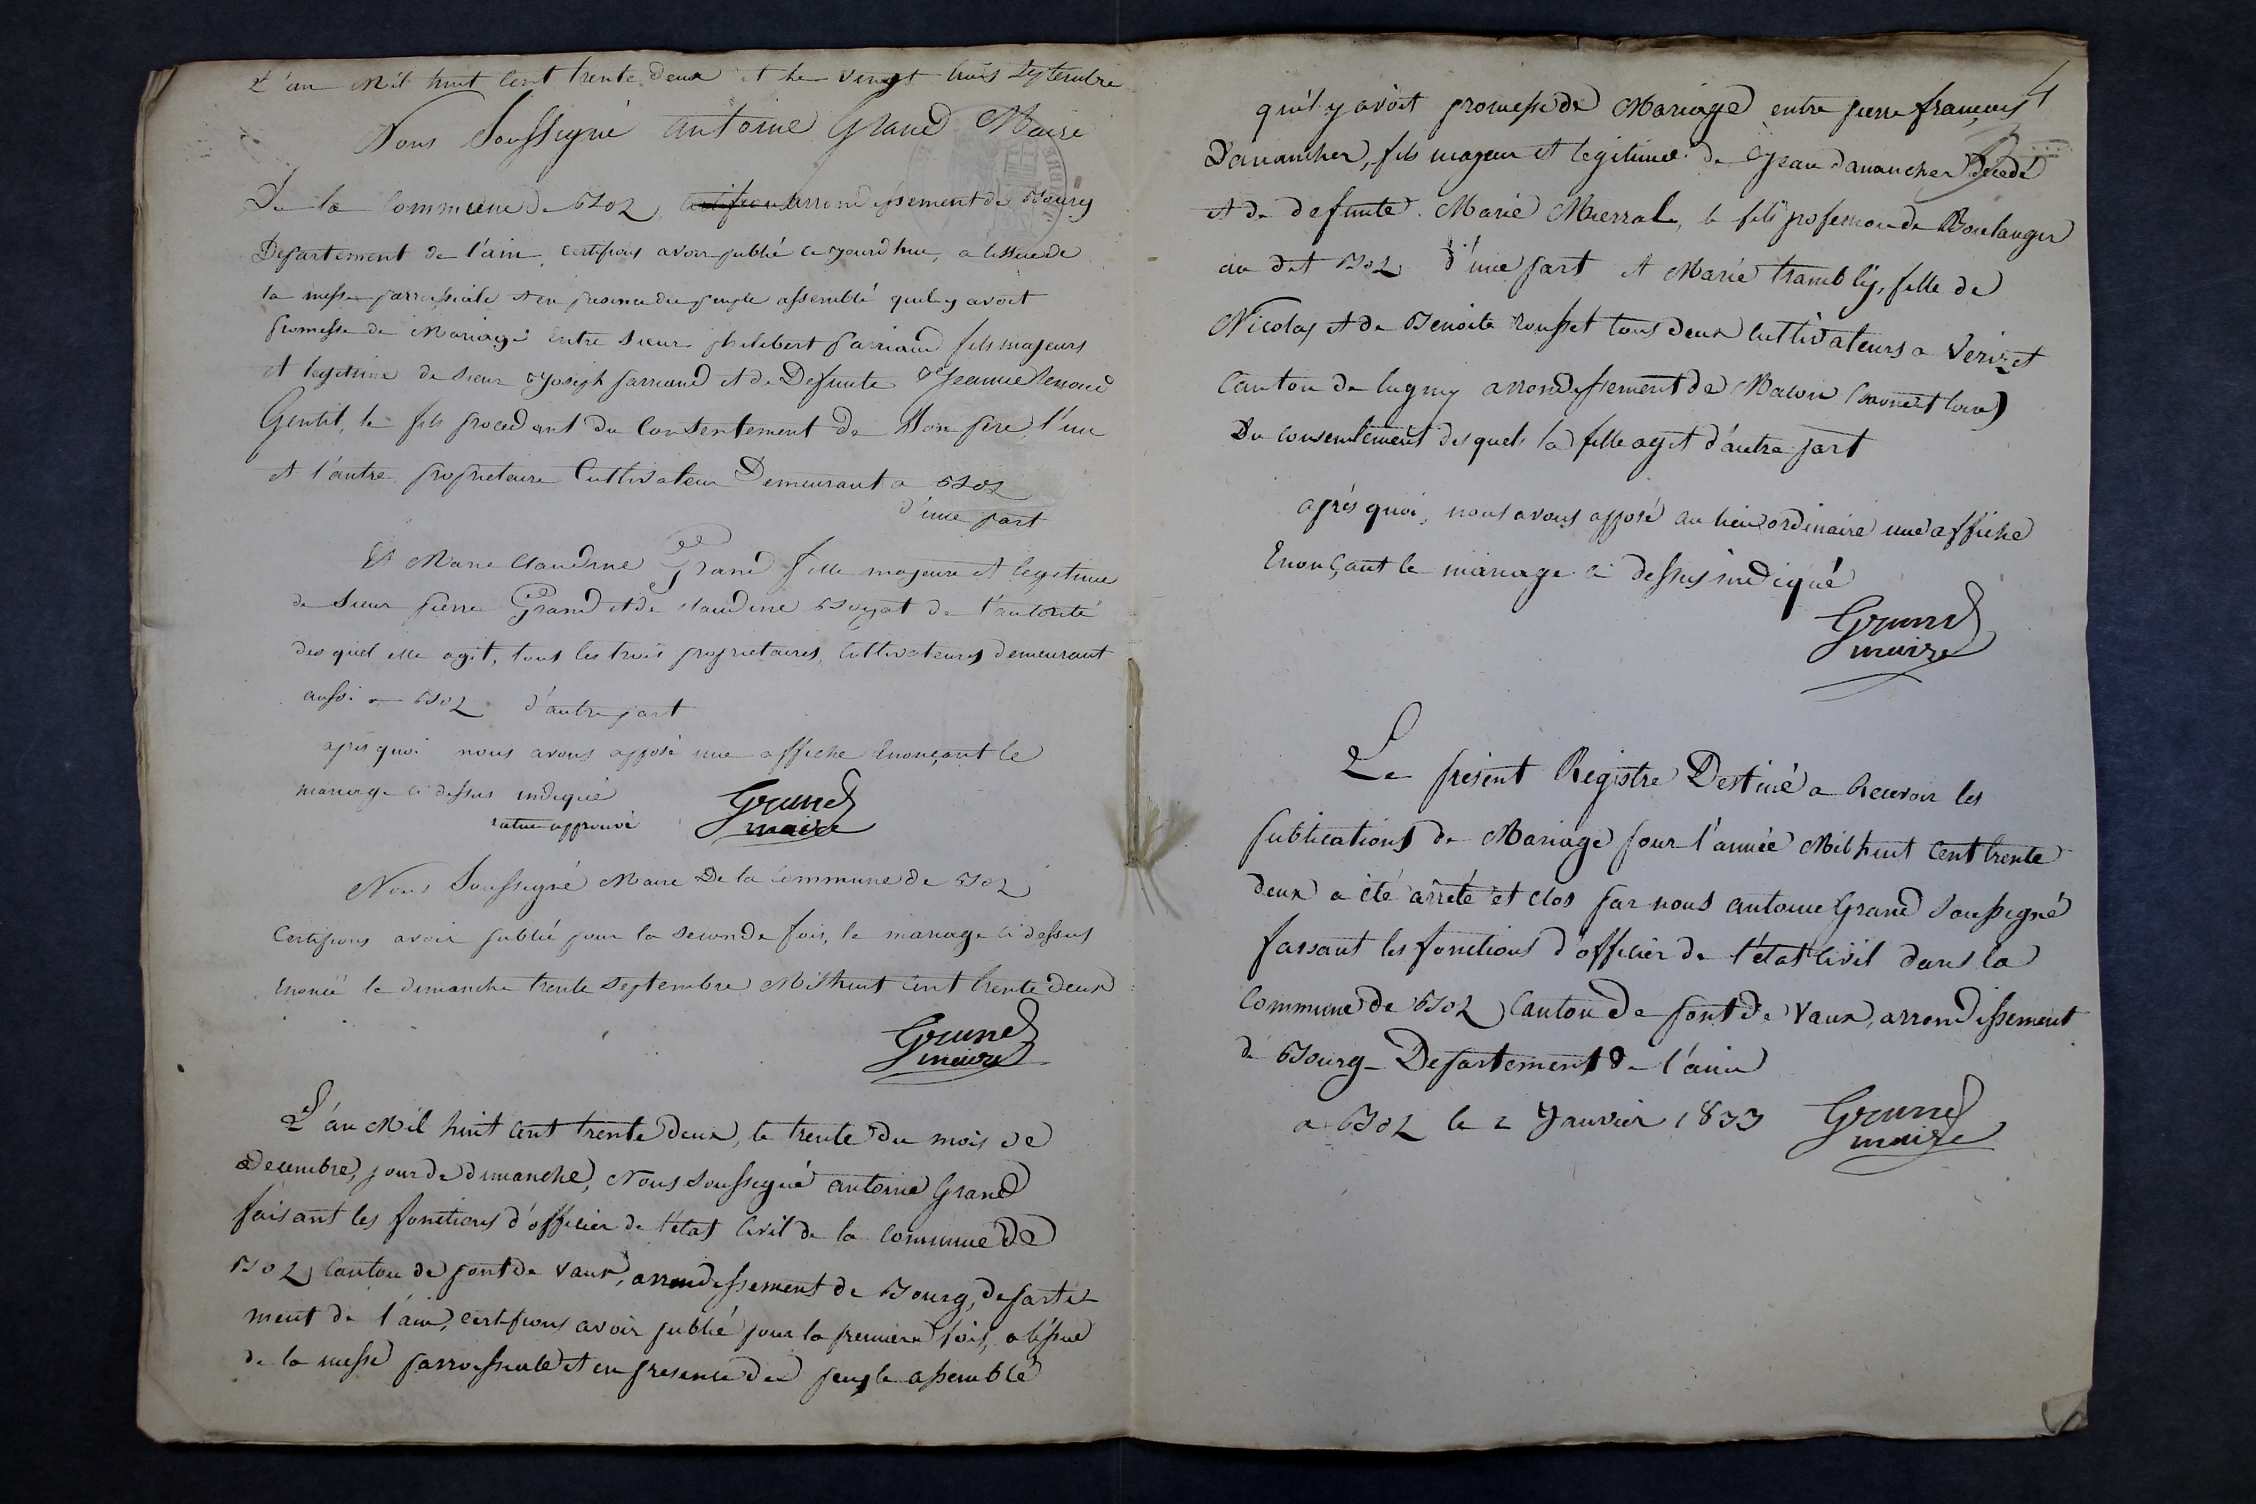 L'an Mil huit Cent trente deux et le vingt trois Septembre
Nous Soussigné antoine Grand Maire
De la Commune de Boz, certifions arrondissement de Bourg
Departement de l'ain, certifions avoir publié ce jourd'hui, a l'issue de
la messe parroissiale et en presence du peuple assemblé qu'il y avoit
promesse de Mariage entre Sieur philibert parriaud fils majeurs
et legitime de Sieur Joseph parriaud et de Defunte Jeanne
Gentil, le fils procedant du Consentement de Son père, l'un
et l'autre proprietaire Cultivateur Demeurant a Boz
d'une part
Et Marie Claudine Grand fille majeure et legitime
de Sieur pierre Grand et de Claudine Boyat de l'autorité
des quel elle agit, tous les trois proprietaires, Cultivateurs demeurant
aussi a Boz d'autre part
après quoi nous avons apposé une affiche Enonçant le
mariage ci dessus indiqué
rature approuvé Grand
maire
Nous Soussigné Maire De la Commune de Boz
Certifions avoir publié pour la Seconde fois, le mariage ci dessus
énoncé le dimanche trente Septembre Mil huit Cent trente deux
Grand
maire
L'an Mil huit Cent trente deux, le trente du mois de
Decembre, jour de dimanche, Nous Soussigné antoine Grand
faisant les fonctions d'officier de l'état Civil de la Commune de
Boz, Canton de pont de Vaux, arrondissement de Bourg, departe-
ment de l'ain, certifions avoir publié pour la premiere fois, a l'issue
de la messe parroissiale et en presence du peuple assemblé
4
qu'il y avoit promesse de Mariage entre pierre françois
Danancher, fils majeur et legitime de Jean Danancher Décédé
et de defunte Marie Mierral, le fils profession de Boulanger
au dit Boz d'une part et Marie trambly, fille de
Nicolas et de Benoite rousset tous deux Cultivateurs a Verizet
Canton de lugny arrondissement de Macon (saone et loire)
Du consentement des quels la fille agit d'autre part
après quoi, nous avons apposé au lieu ordinaire une affiche
Enonçant le mariage ci dessus indiqué
Grand
maire
Le présent Registre Destiné a Recevoir les
publications de Mariage pour l'année Mil huit Cent trente
deux a été arrêté et clos par nous antoine Grand Soussigné
faisant les fonctions d'officier de l'état Civil dans la
Commune de Boz, Canton de pont de Vaux, arrondissement
de Bourg - Departement de l'ain
a Boz le 2 Janvier 1833 Grand
maire